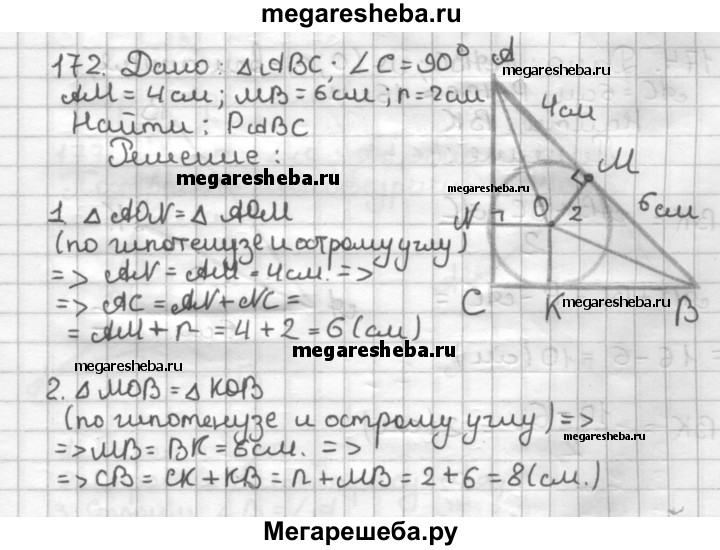 megaresheba.ru
172. Дано: △ABC; ∠C=90°
AM=4см; MB=6см; r=2см
Найти: PABC
Решение:
megaresheba.ru
1. △AON=△AOM
(по гипотенузе и острому углу)
=> AN=AM=4см. =>
=> AC=AN+NC=
=AM+r=4+2=6(см)
megaresheba.ru
megaresheba.ru
2. △MOB=△KOB
(по гипотенузе и острому углу)=>
=>MB=BK=6см. =>
=>CB=CK+KB=r+MB=2+6=8(см.)
megaresheba.ru
A
megaresheba.ru
4см
M
megaresheba.ru
N
O
2
6см
C
K
megaresheba.ru
B
Мегарешеба.ру